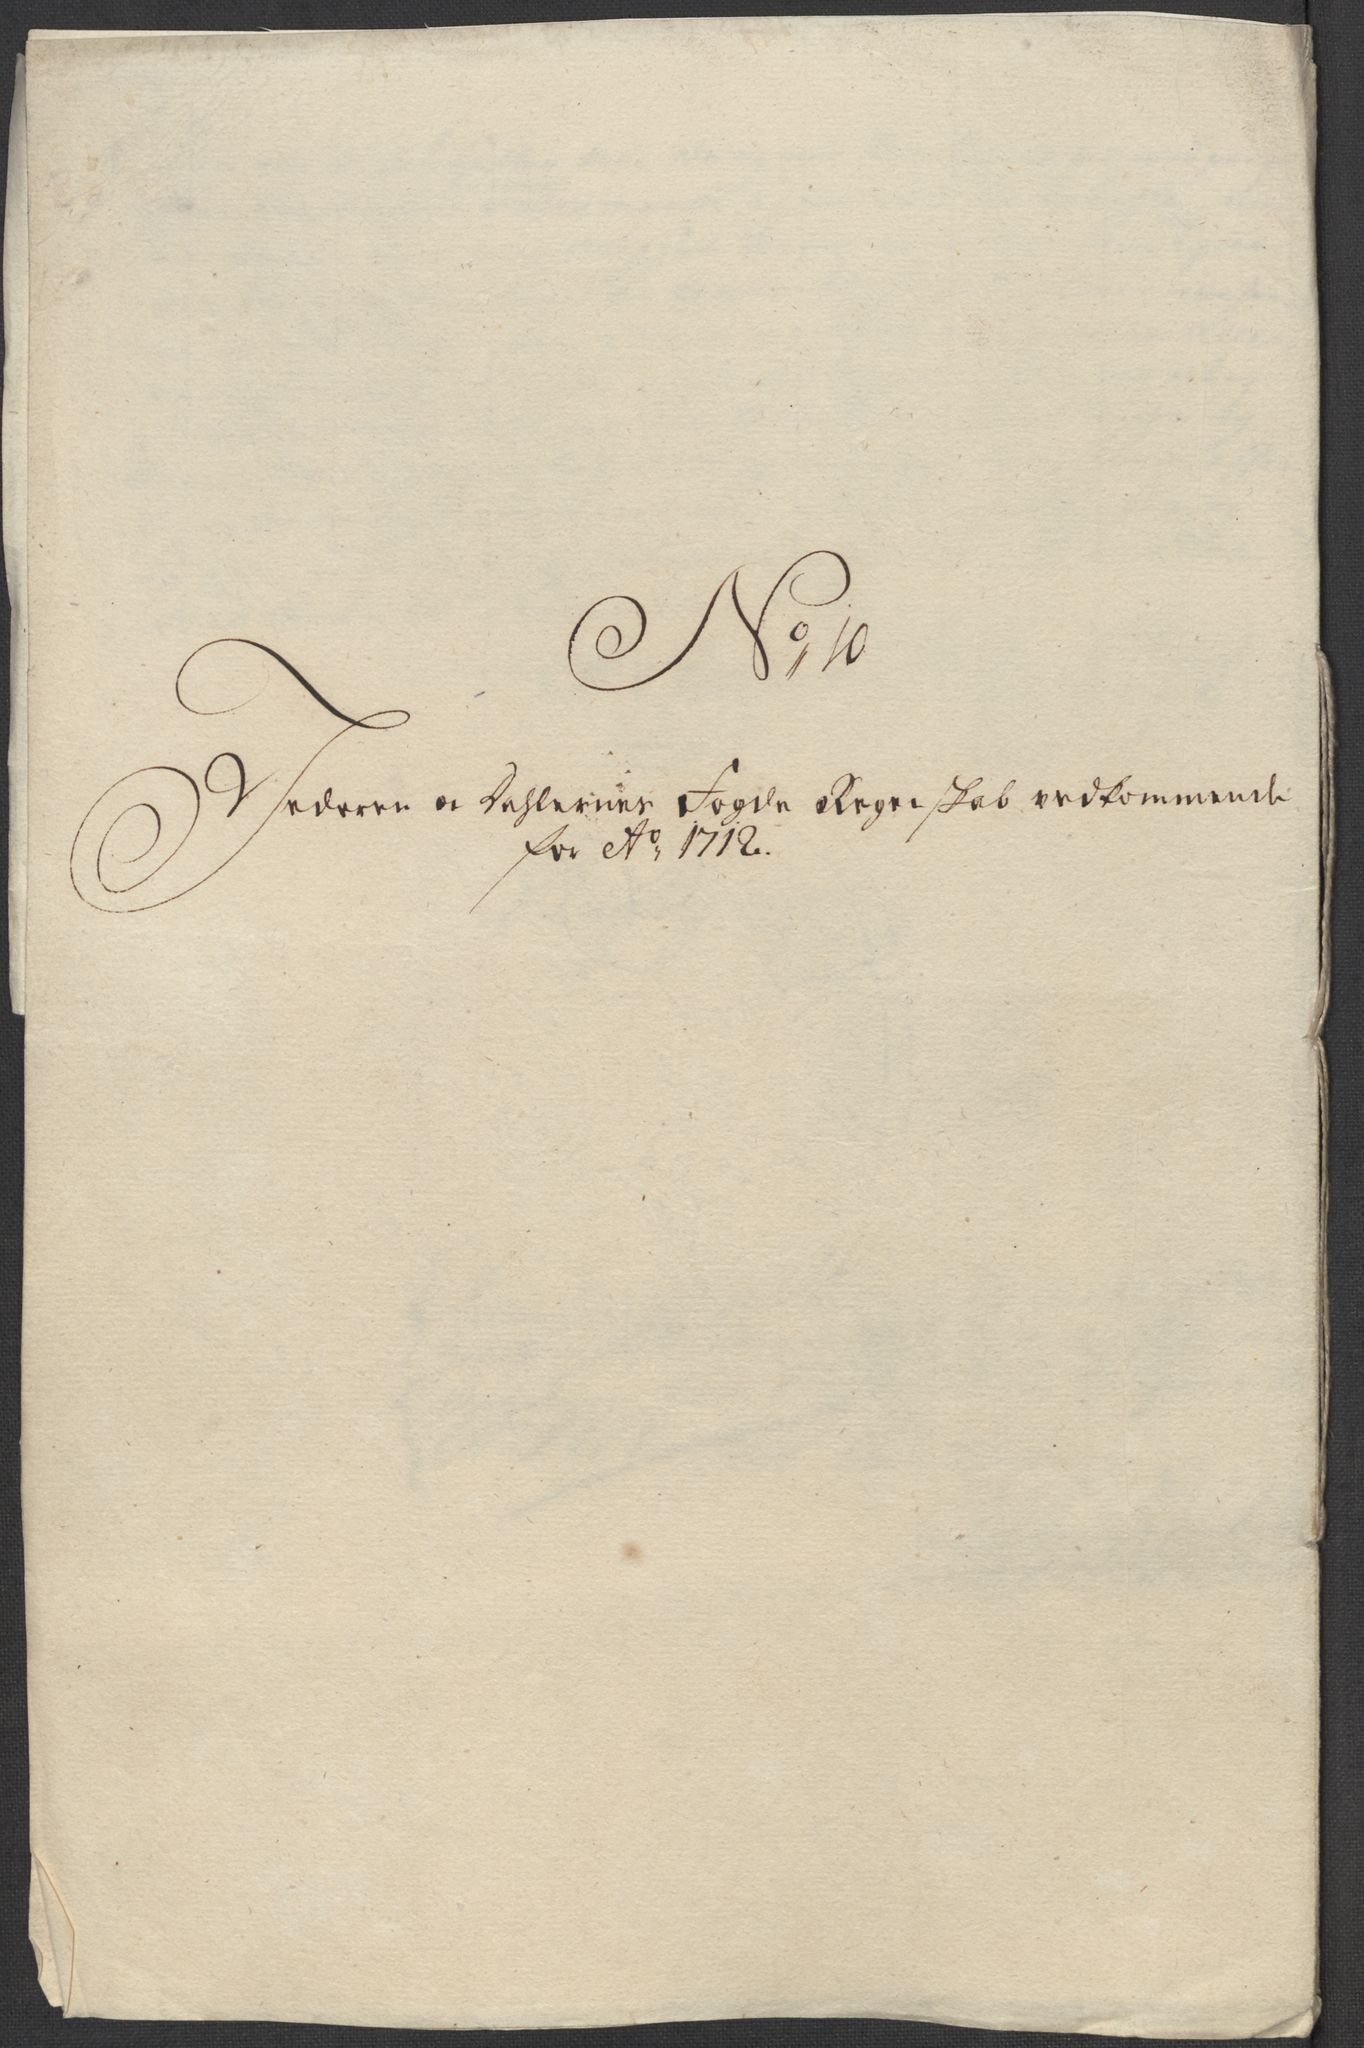 No 10
Jederen og Dahlernes Fogde Regenskab vedkommende
for Ao 1712.